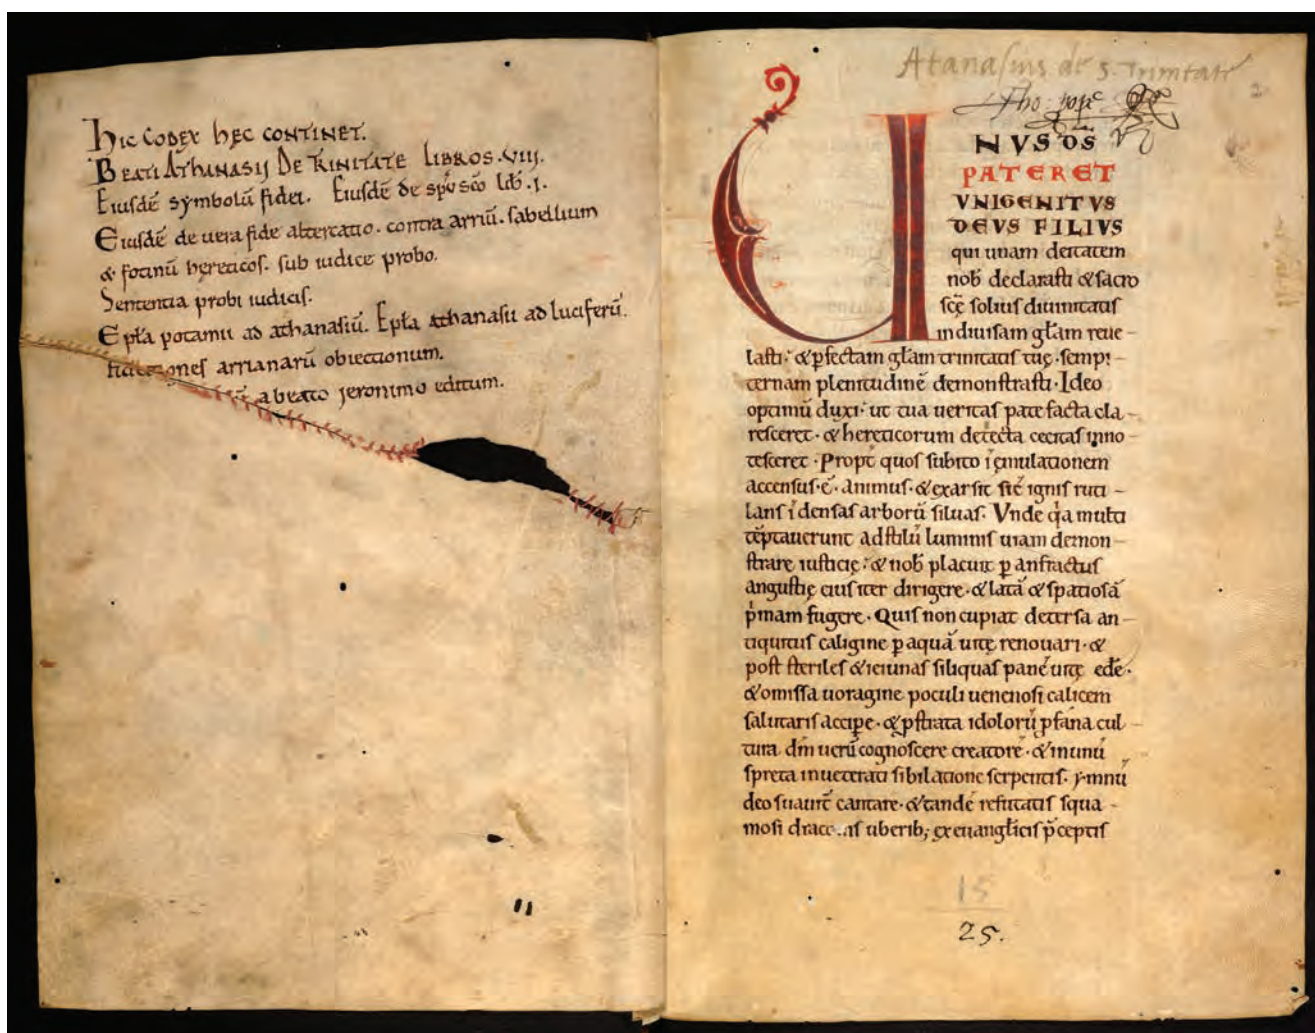 Hic Codex hęc continet.
Beati Athanasij De Trinitate libros .viij.
Eiusdē symbolū fidei. Eiusdē de spū scō lib̄ .i.
Eiusdē de uera fide altercatio. contra arriū. sabellium
& fotinū hęreticos. sub iudice probo.
Sententia probi iudicis.
Ep̄ła potamii ad athanasiū. Ep̄ła athanasii ad luciferū.
arrianarū obiectionum.
a beato jeronimo editum.
Atanasius de S. Trinitate
2
Tho: pope
UNVS DS
PATER ET
VNIGENITVS
DEVS FILIVS
qui unam deitatem
nob̄ declarasti & sacro
scę̄ solius diuinitatis
indiuisam gl̄am reue-
lasti; & p̱fectam gl̄am trinitatis tuę. sempi-
ternam plenitudinē demonstrasti. Ideo
optimū duxi. ut tua ueritas patefacta cla-
resceret. & hereticorum detecta cecitas inno-
tesceret. Propt̄ quos subito ī ęmulationem
accensus. ē. animus. & exarsit sic̄ ignis ruti-
lans ī densas arborū siluas. Vnde qͣa multi
tēptauerunt ad stilū luminis uiam demon-
strare iusticię; & nob̄ placuit p̱ anfractus
angustię eius iter dirigere. & latā & spatiosā
pͥmam fugere. Quis non cupiat detersa an-
tiquitus caligine p̱ aquā uitę renouari. &
post steriles & ieiunas siliquas panē uitę edē.
& omissa uoragine poculi uenenosi calicem
salutaris accipe. & p̱strata idolorū p̱fana cul-
tura dm̄ uerū cognoscere creatorē. & inunū
spreta inueterati sibilatione serpentis. ymnū
deo suauit̄ cantare. & tandē refutatis squa-
mosi draconis uberib; ex euanglicis p̄ceptis
15
25.